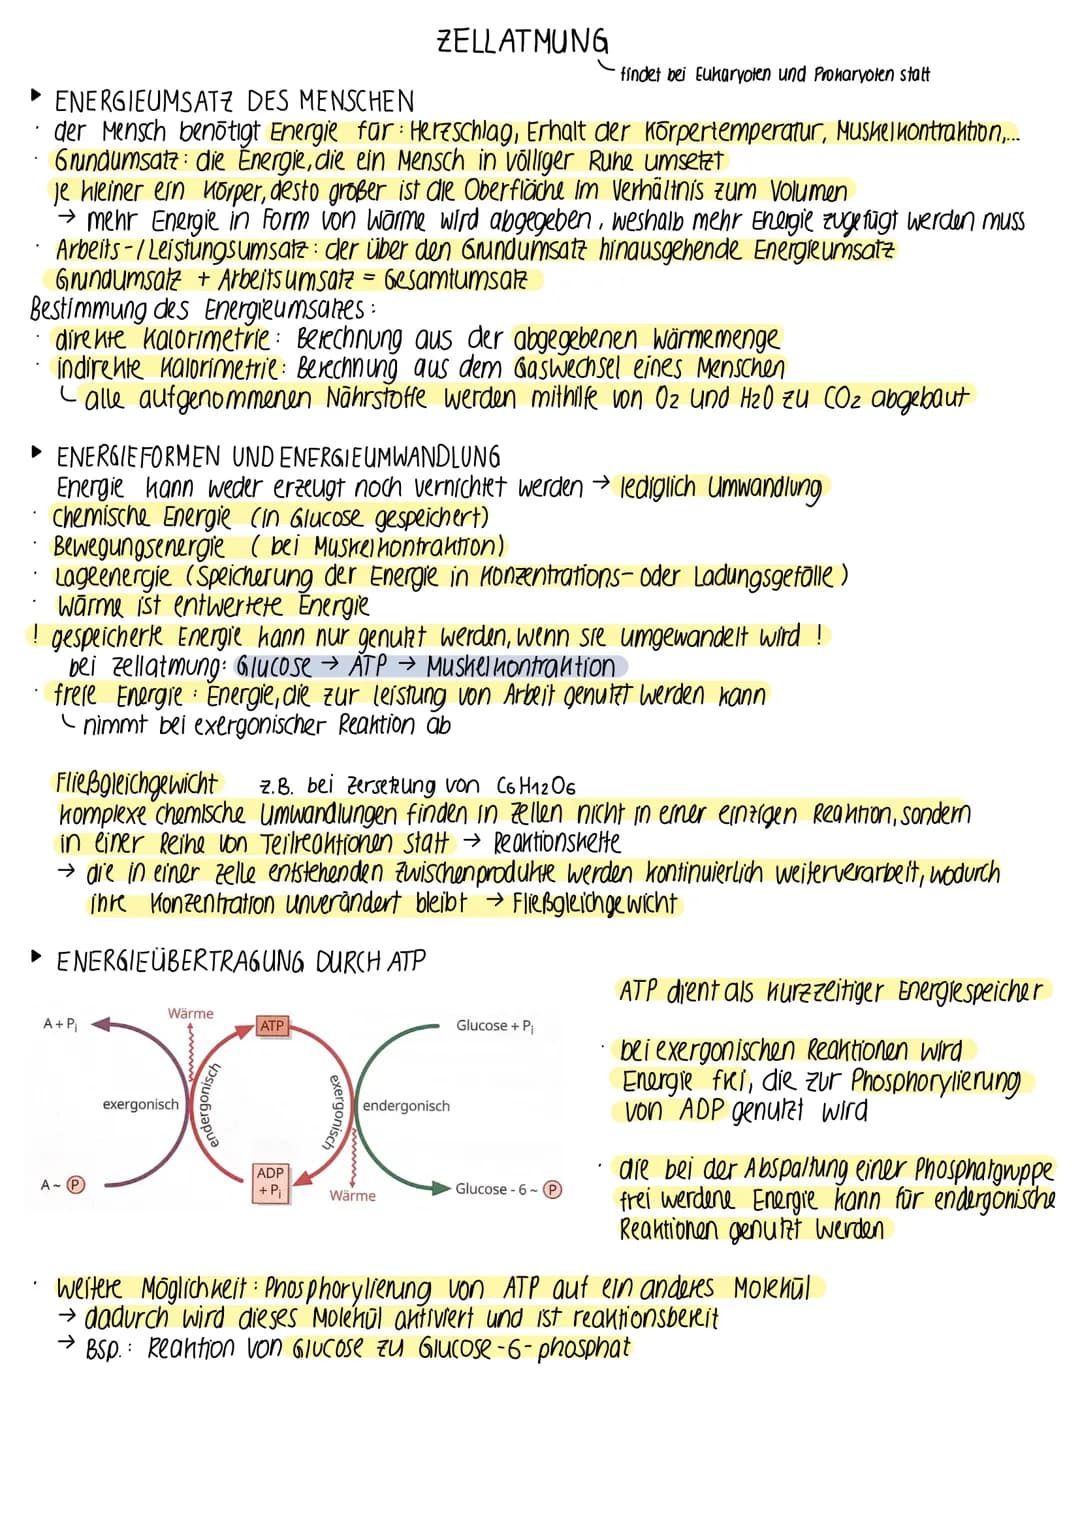 ZELLATMUNG
findet bei Eukaryoten und Prokaryoten statt
▸ ENERGIEUMSATZ DES MENSCHEN
· der Mensch benötigt Energie für: Herzschlag, Erhalt der Körpertemperatur, Muskelkontraktion,...
· Grundumsatz: die Energie, die ein Mensch in völliger Ruhe umsetzt
je kleiner ein Körper, desto großer ist die Oberfläche im Verhältnis zum Volumen
→ mehr Energie in Form von Wärme wird abgegeben, weshalb mehr Energie zugefügt werden muss
· Arbeits-/Leistungsumsatz: der über den Grundumsatz hinausgehende Energieumsatz
Grundumsatz + Arbeitsumsatz = Gesamtumsatz
Bestimmung des Energieumsatzes:
· direkte Kalorimetrie: Berechnung aus der abgegebenen Wärmemenge
· indirekte Kalorimetrie: Berechnung aus dem Gaswechsel eines Menschen
alle aufgenommenen Nährstoffe werden mithilfe von O2 und H2O zu CO2 abgebaut
▸ ENERGIEFORMEN UND ENERGIEUMWANDLUNG
Energie kann weder erzeugt noch vernichtet werden → lediglich Umwandlung
· chemische Energie (in Glucose gespeichert)
· Bewegungsenergie (bei Muskelkontraktion)
· Lageenergie (Speicherung der Energie in Konzentrations- oder Ladungsgefälle)
· Wärme ist entwertete Energie
! gespeicherte Energie kann nur genutzt werden, wenn sie umgewandelt wird !
bei Zellatmung: Glucose → ATP → Muskelkontraktion
· freie Energie: Energie, die zur leistung von Arbeit genutzt werden kann
nimmt bei exergonischer Reaktion ab
Fließgleichgewicht z.B. bei Zersetzung von C6H12O6
komplexe chemische Umwandlungen finden in Zellen nicht in einer einzigen Reaktion, sondern
in einer Reihe von Teilreaktionen statt → Reaktionskette
→ die in einer Zelle entstehenden Zwischenprodukte werden kontinuierlich weiterverarbeit, wodurch
ihre Konzentration unverändert bleibt → Fließgleichgewicht
▸ ENERGIEÜBERTRAGUNG DURCH ATP
ATP dient als kurzzeitiger Energiespeicher
A + Pi
Wärme
ATP
Glucose + Pi
exergonisch
endergonisch
exergonisch
endergonisch
A ~ P
ADP
+ Pi
Wärme
Glucose - 6 ~ P
· bei exergonischen Reaktionen wird
Energie frei, die zur Phosphorylierung
von ADP genutzt wird
· die bei der Abspaltung einer Phosphatgruppe
frei werdene Energie kann für endergonische
Reaktionen genutzt werden
· weitere Möglichkeit: Phosphorylierung von ATP auf ein anderes Molekül
→ dadurch wird dieses Molekül aktiviert und ist reaktionsbereit
→ Bsp.: Reaktion von Glucose zu Glucose-6-phosphat